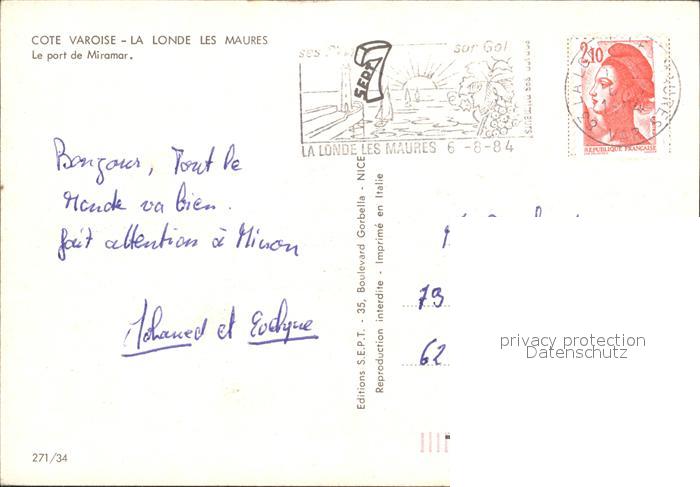 COTE VAROISE - LA LONDE LES MAURES
Le port de Miramar.
sur Gol
SEPT
LA LONDE LES MAURES 6-8-84
2,10
REPUBLIQUE FRANCAISE
Bonjour, Tout le
Monde va bien.
fait attention à Minon
Mohamed et Evelyne
Editions S.E.P.T. - 35, Boulevard Gorbella - NICE
Reproduction interdite - Imprimé en Italie
79
62
privacy protection
Datenschutz
271/34